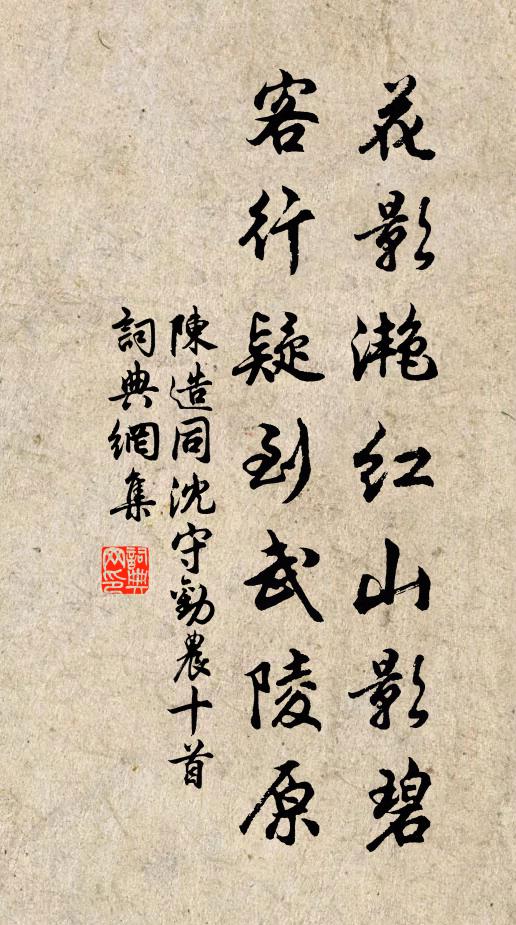 花影灔红山影碧
客行疑到武陵原
陳造同沈守勸農十首
詞典網集
詞典網印